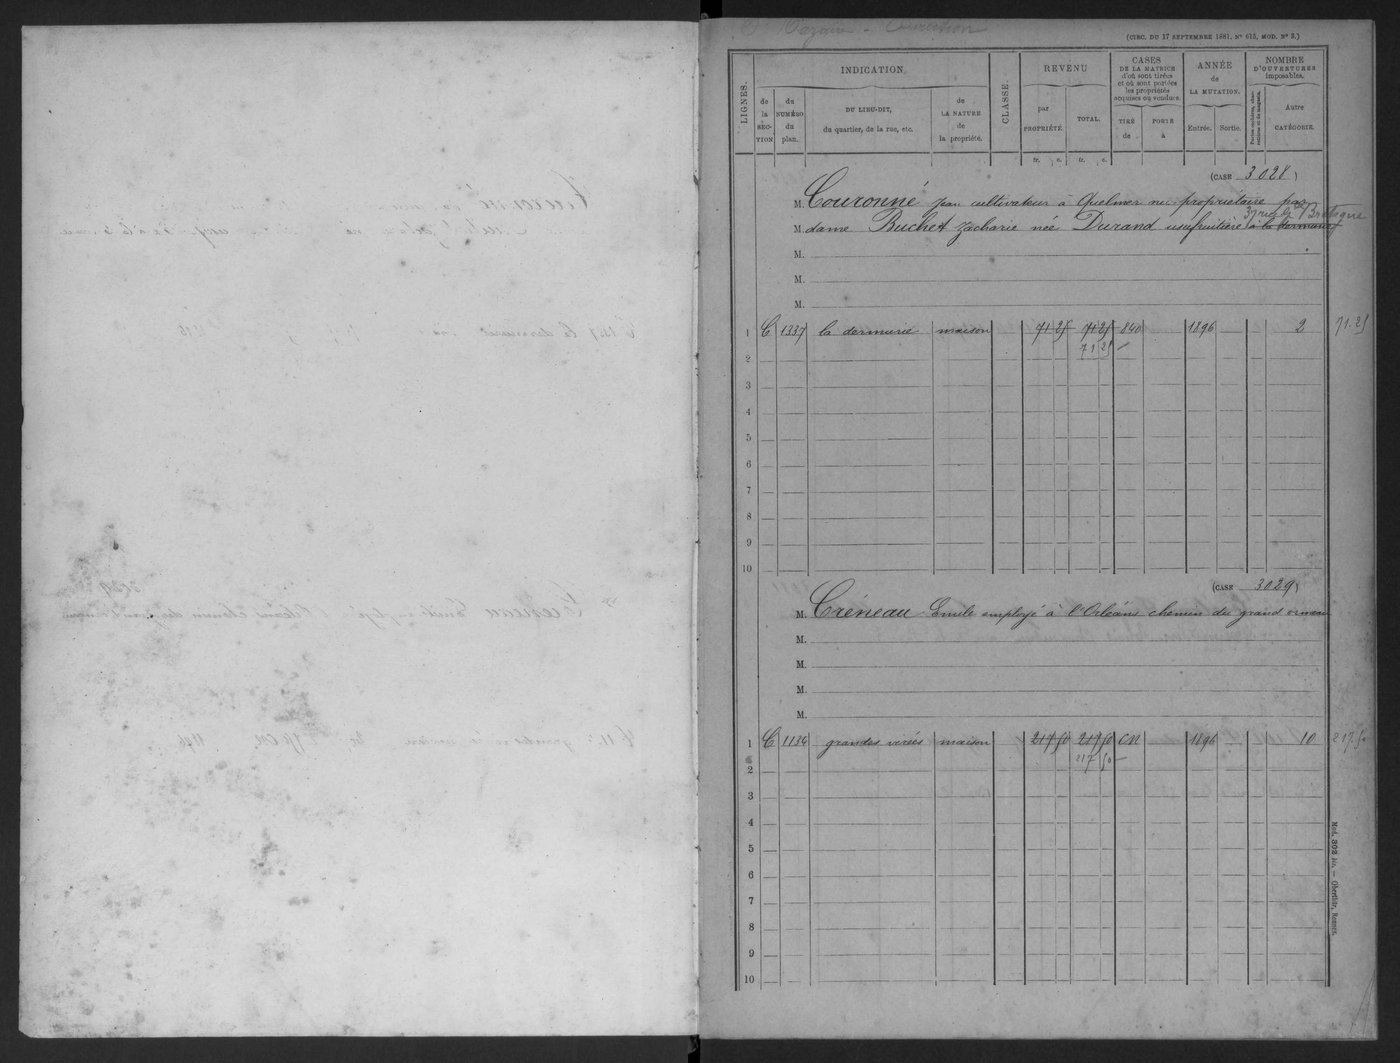 St Nazaire - Direction
(CIRC. DU 17 SEPTEMBRE 1881, N° 615, MOD. N° 3.)
LIGNES.
INDICATION
de la SECTION
du NUMÉRO du plan.
DU LIEU-DIT, du quartier, de la rue, etc.
de LA NATURE de la propriété.
CLASSE.
REVENU
par PROPRIÉTÉ.
TOTAL.
CASES DE LA MATRICE d'où sont tirées et où sont portées les propriétés acquises ou vendues.
TIRÉ de
PORTÉ à
ANNÉE de LA MUTATION.
Entrée.
Sortie.
NOMBRE D'OUVERTURES imposables.
Autre CATÉGORIE.
fr. c. fr. c.
(CASE 3028)
M. Couronné Jean cultivateur à Quelmer nu-propriétaire par
37 rue de Bretagne
M. dame Buchet Zacharie née Durand usufruitière à la dermurie
M.
M.
M.
1 C 1337 la dermurie maison 71 25 71 25 840 1896 2 71.25
71 25
2
3
4
5
6
7
8
9
10
(CASE 3029)
M. Créneau Emile employé à l'Orléans chemin du grand ormeau
M.
M.
M.
M.
1 C 1134 grandes virées maison 217 50 217 50 CN 1896 10 217.50
217 50
2
3
4
5
6
7
8
9
10
Mod. 302 bis. — Oberthür, Rennes.